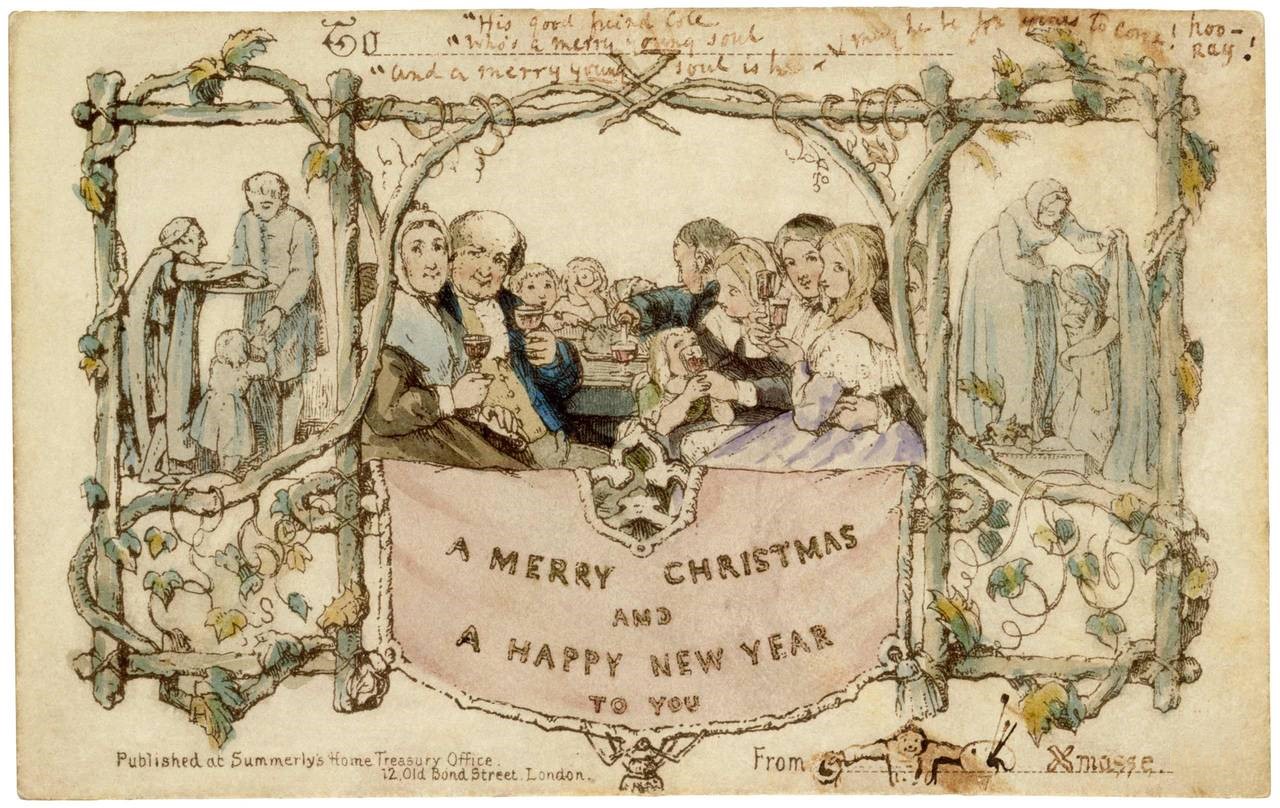 To "His good friend Cole
"Who's a merry young soul
"And a merry young soul is he
& may he be for years to come! hoo-
Ray!
A MERRY CHRISTMAS
AND
A HAPPY NEW YEAR
TO YOU
Published at Summerly's Home Treasury Office.
12, Old Bond Street, London.
From
Xmasse